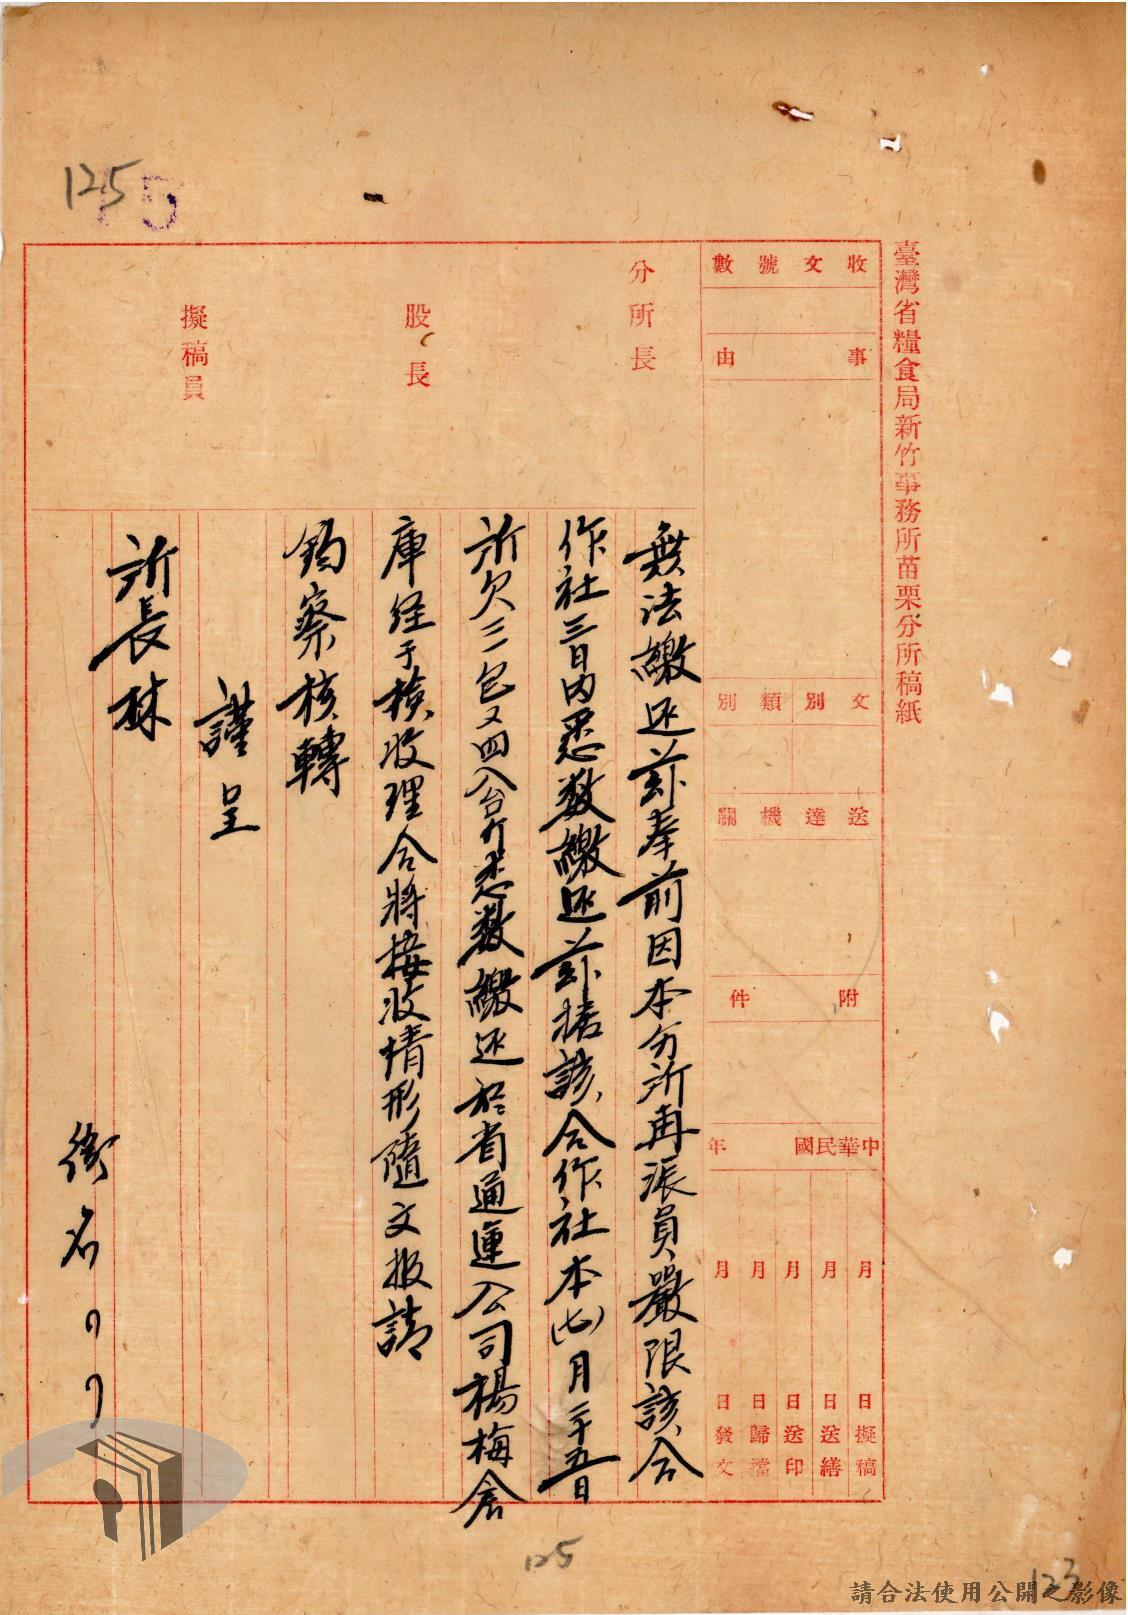 125
5
臺灣省糧食局新竹事務所苗栗分所稿紙
收文號數
事由
文別
類別
送達機關
附件
中華民國 年
月 日擬稿
月 日送繕
月 日送印
月 日歸檔
月 日發文
分所長
股長
擬稿員
無法繳还葑奉前因本分所再派員嚴限該合
作社三日內悉数繳还葑据該合作社本(七)月二十五日
所欠三包又四八台斤悉数繳还於省通運公司楊梅倉
庫経于検收理合將接收情形隨文报請
鈞察核轉
謹呈
所長林
銜名
125
123
請合法使用公開之影像